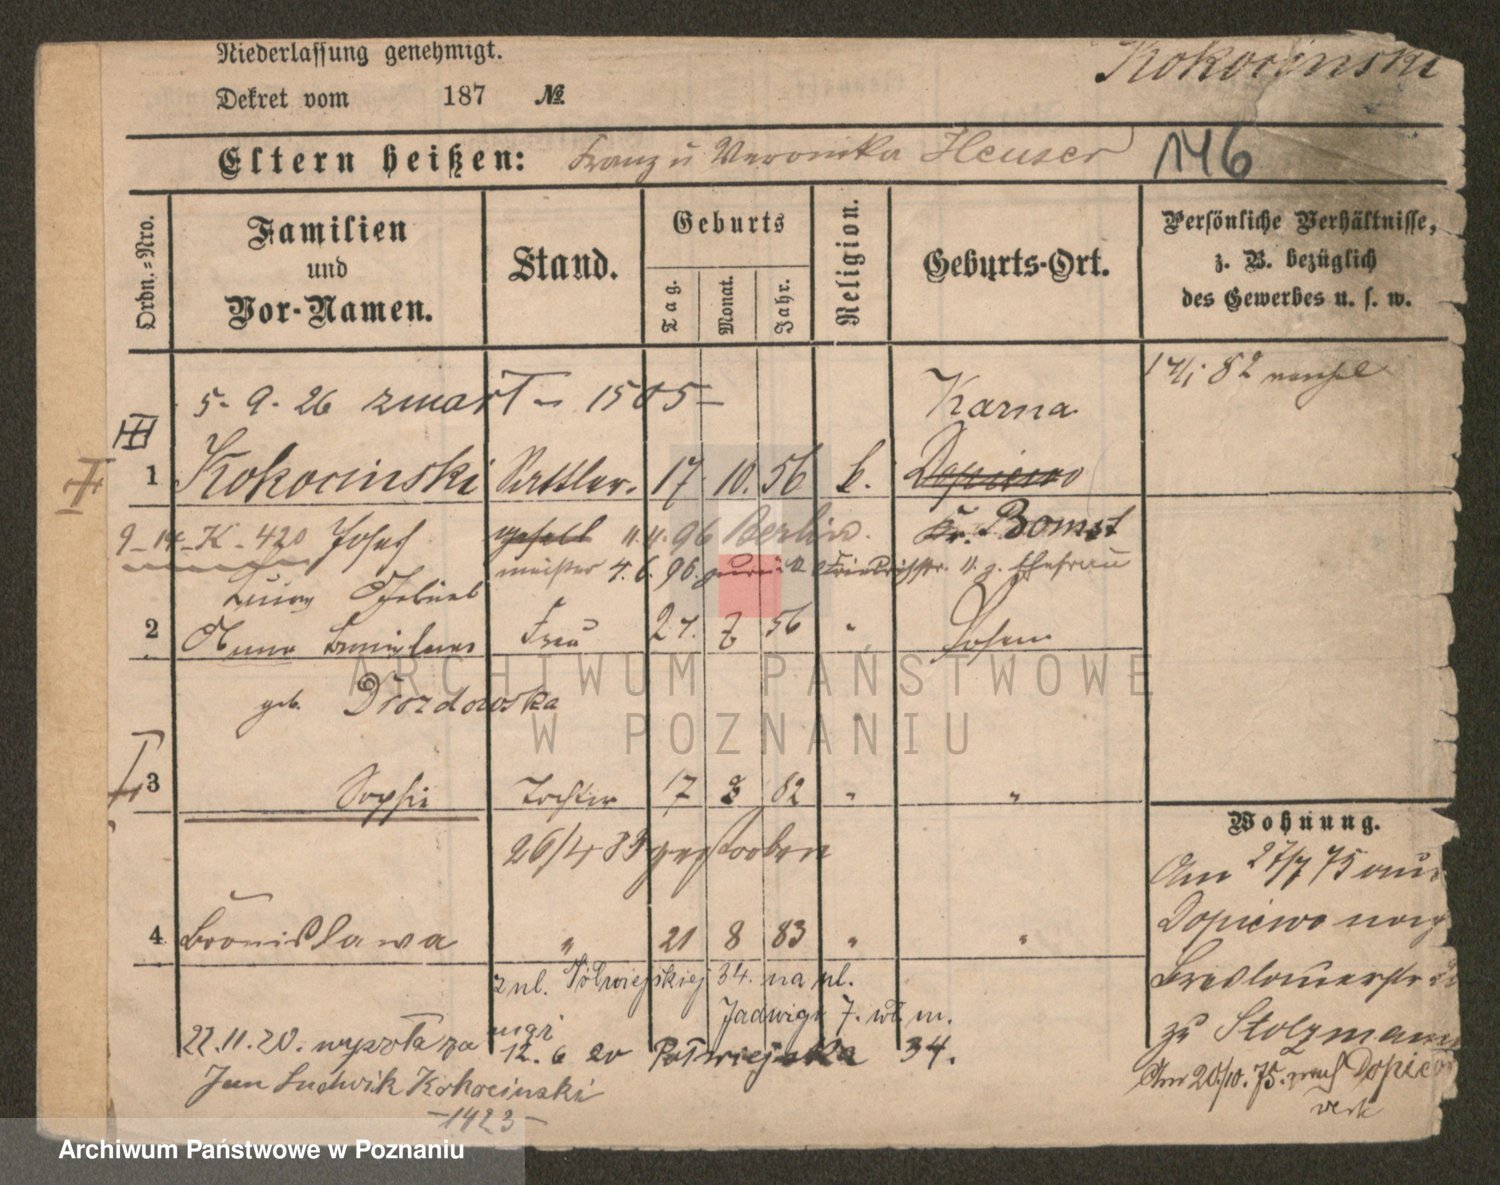 Niederlassung genehmigt.
Kokocinski
Dekret vom 187 №
Eltern heißen: Franz u Veronika Heuser
146
Ordn.-Nro.
Familien
und
Vor-Namen.
Stand.
Geburts
Tag.
Monat.
Jahr.
Religion.
Geburts-Ort.
Persönliche Verhältnisse,
z. B. bezüglich
des Gewerbes u. s. w.
82
5-9-26 zmarł - 1505 -
Karna
1 Kokocinski Sattler. 17. 10. 56 k. Dopiewo
9-14-K-420 Josef gesell 11.11.96 Berlin. Kr. Bomst
meister 4.6.96. zurück Friedrichstr. Ehefrau
2 Anna Frau 27. 7 56 " Posen
geb. Drozdowska
3 Sophie Tochter 17 82 " "
26/4 83 gestorben
4 Bronislawa " 21 8 83 " "
Wohnung.
Am 27/7 75 aus
Dopiewo
Breslauerstr
zu Stolzmann
Am 20/10. 75. nach Dopiewo
z ul. Półwiejskiej 34. na ul.
Jadwigi 7. wł. m.
22.11.20. wyszła za
12. 6 20 Półwiejska 34.
Jan Ludwik Kokocinski
-1423-
ARCHIWUM PAŃSTWOWE
W POZNANIU
Archiwum Państwowe w Poznaniu